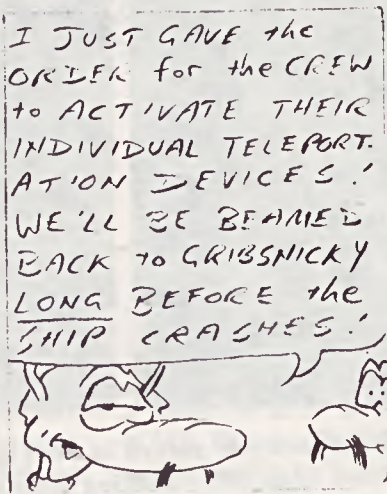 I JUST GAVE the
ORDER for the CREW
to ACTIVATE THEIR
INDIVIDUAL TELEPORT-
ATION DEVICES!
WE'LL BE BEAMED
BACK to GRIBSNICKY
LONG BEFORE the
SHIP CRASHES!